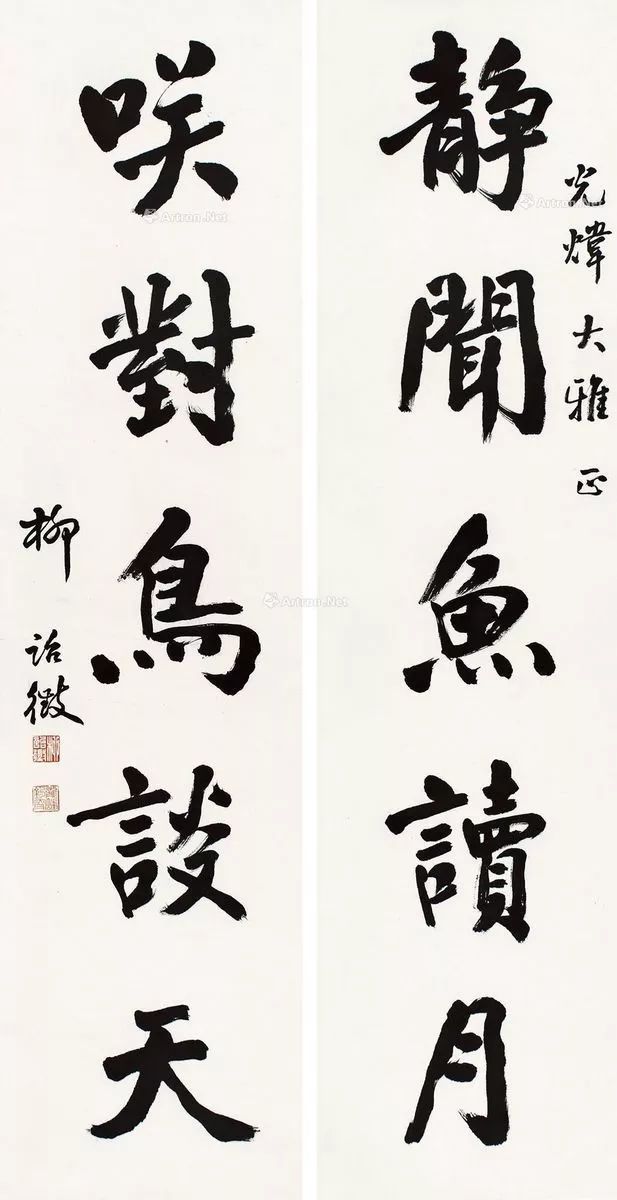 光煒大雅正
靜聞魚讀月
咲對鳥談天
柳詒徵
Artron.Net
Artron.Net
Artron.Net